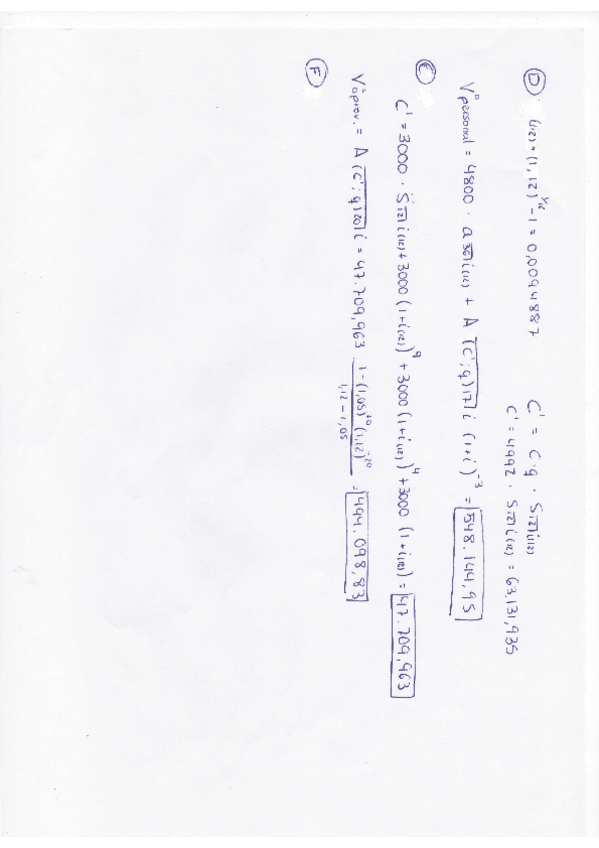 D i(12) = (1,12)^1/12 - 1 = 0,0094887
C' = C·q · S12|i(12)
C' = 4992 · S12|i(12) = 63.131,935
V°personal = 4800 · a36|i(12) + A(C';q)17|i (1+i)^-3 = 548.144,95
E
C' = 3000 · S12|i(12) + 3000 (1+i(12))^9 + 3000 (1+i(12))^4 + 3000 (1+i(12)) = 47.709,963
V°aprov. = A(C';q)20|i = 47.709,963 · 1-(1,05)^20 (1,12)^-20 / 1,12 - 1,05 = 494.098,83
F